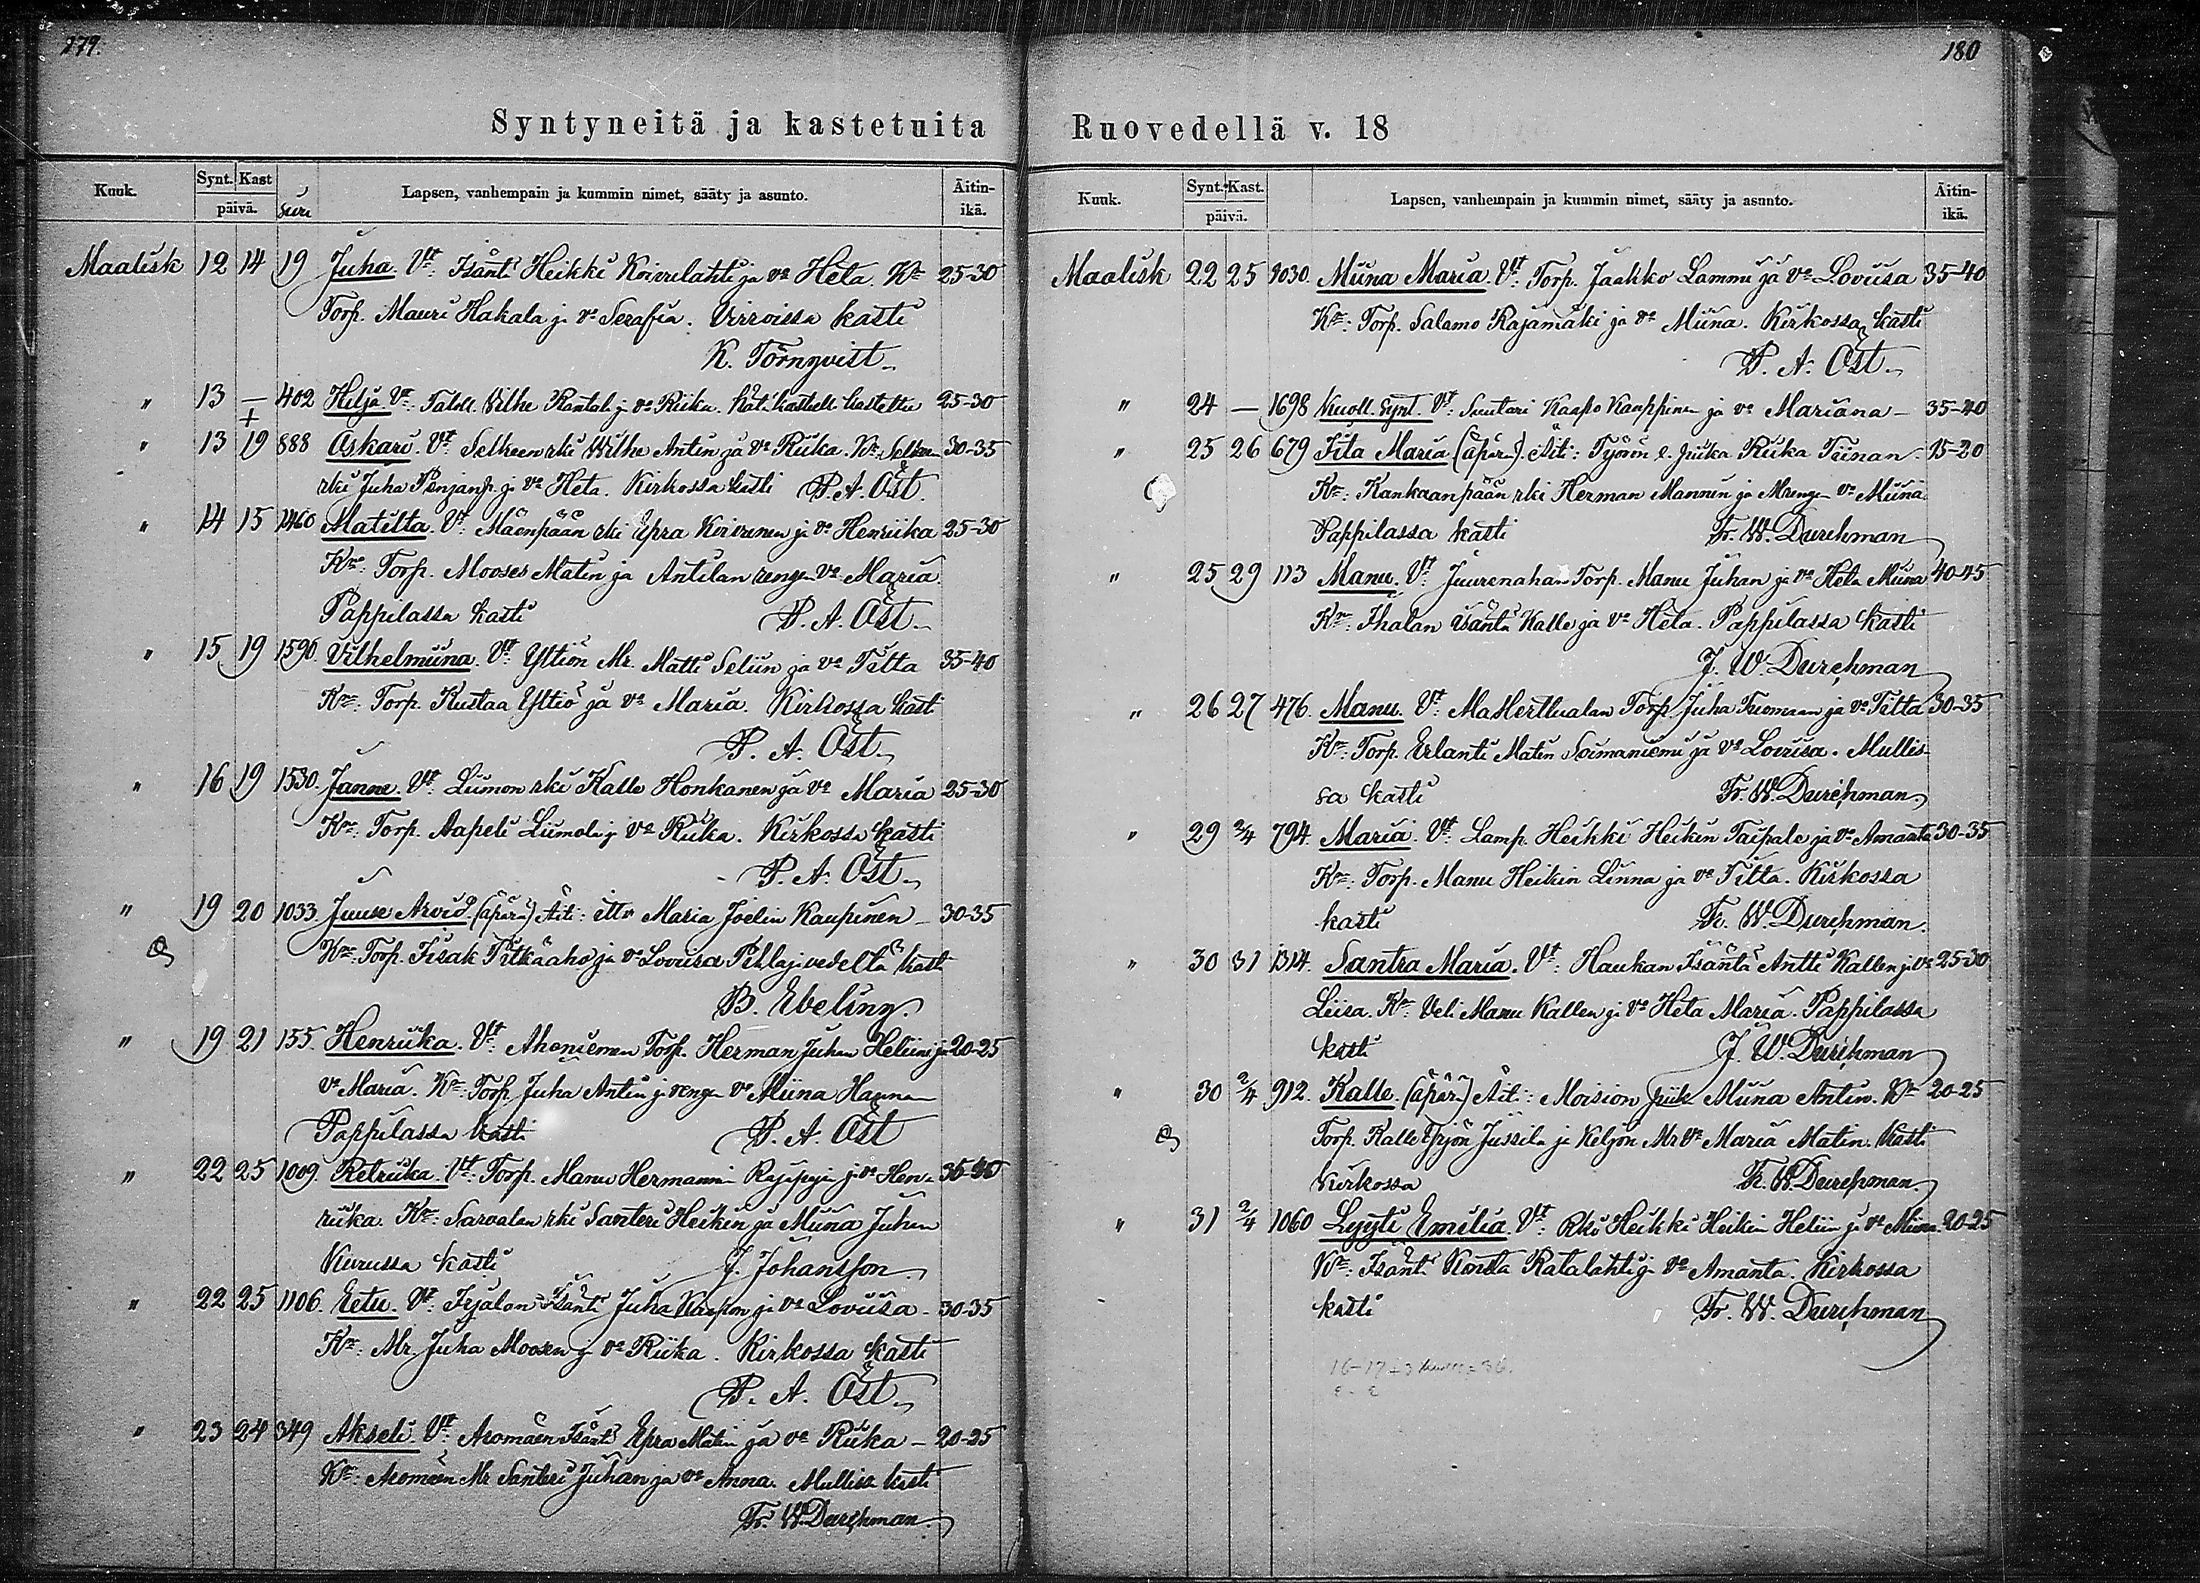 179.
Syntyneitä ja kastetuita
Kuuk. Synt. Kast päivä. Lapsen, vanhempain ja kummin nimet, sääty ja asunto. Äitin-ikä.
Maalisk 12 14 19 Juha. Vt: Isäntä Heikki Koivulahti ja vo Heta. Kt 25-30
Torp. Mauri Hakala j. vo Serafia. Virroissa kasti
K. Törnqvist.
" 13 — 402 Hilja Vt: Wilhe Rantal. j. vo Riika. kastettu 25-30
" 13 19 888 Oskari. Vt: rki Wilhe Antin ja vo Riika. 30-35
rki Juha j. vo Heta. Kirkossa kasti P. A. Öst.
" 14 15 1460 Matilta. Vt: Mäenpään rki Epra j. vo Henriika 25-30
Kt: Torp. Mooses Matin ja Antilan rengin vo Maria
Pappilassa kasti P. A. Öst.
" 15 19 1590. Vilhelmiina. Vt: Yltiön Mr. Matti Seliin ja vo Titta 35-40
Kt: Torp. Kustaa Yltiö ja vo Maria. Kirkossa kasti
P. A. Öst.
" 16 19 1530. Janne. Vt: Liimon rki Kalle Honkanen ja vo Maria 25-30
Kt: Torp. Aapeli Liimola j. vo Riika. Kirkossa kasti
P. A. Öst.
" 19 20 1033 Juuse Arvid (äpärä) Äiti: Maria Joelin Kaupinen 30-35
Kt: Torp. Iisak Pitkäaho ja vo Loviisa Pihlajvedeltä kasti
B. Ebeling.
" 19 21 155. Henriika. Vt: Ahoniemen Torp. Herman Juhan Heliin ja 20-25
vo Maria. Kt: Torp. Juha Antin j. rengin vo Miina Hanna
Pappilassa kasti P. A. Öst
" 22 25 1009. Retriika. Vt: Torp. Manu Hermanni j. vo Hen- 35-40
riika. Kt: Sarvalan rki Santeri Heikin ja Miina Juhan
Kurussa kasti J. Johansson.
" 22 25 1106. Eetu. Vt: Isäntä Juha j. vo Loviisa 30-35
Kt: Mr. Juha Moosen j. vo Riika. Kirkossa kasti
P. A. Öst.
" 23 24 349 Akseli. Vt: Aromäen Isäntä Epra Matin ja vo Riika — 20-25
Kt: Aromäen Mr Santeri Juhan ja vo Anna. Mullissa kasti
Fr. W. Durchman.
180
Ruovedellä v. 18
Kuuk. Synt. Kast. päivä. Lapsen, vanhempain ja kummin nimet, sääty ja asunto. Äitin-ikä.
Maalisk 22 25 1030. Miina Maria. Vt: Torp. Jaakko Lammi ja vo Loviisa 35-40
Kt: Torp. Salamo Rajamäki ja vo Miina. Kirkossa kasti
P. A. Öst.
" 24 — 1698 Kuoll. Synt. Vt: Suutari Kaapo Kauppinen ja vo Mariana — 35-40
" 25 26 679 Iita Maria (äpärä) Äiti: piika Riika 15-20
Kt: Kankaanpään rki Herman Mannun ja vo Miina
Pappilassa kasti Fr. W. Durchman
" 25 29 113 Manu. Vt: Torp. Manu Juhan ja vo Heta Miina 40-45
Kt: Ihalan Isäntä Kalle ja vo Heta. Pappilassa kasti
J. W. Durchman
" 26 27 476. Manu. Vt: Torp. Juha Tuomaan ja vo Titta 30-35
Kt: Torp. Erlanti Matin ja vo Loviisa. Mullis-
sa kasti Fr. W. Durchman.
" 29 2/4 794. Maria. Vt: Lamp. Heikki Heikin Taipale ja vo Amanta 30-35
Kt: Torp. Manu Heikin Linna ja vo Titta. Kirkossa
kasti Fr. W. Durchman.
" 30 31 1314. Santra Maria. Vt: Haukan Isäntä Antti Kallen j. vo 25-30
Liisa. Kt: Veli Manu Kallen j. vo Heta Maria. Pappilassa
kasti J. W. Durchman
" 30 2/4 912. Kalle. (äpär) Äit: Moision piik Miina Antin. Kt 20-25
Torp. Kalle Yrjön Jussila ja Keljon Mr vo Maria Matin. Kasti
Kirkossa Fr. W. Durchman.
" 31 2/4 1060 Lyyti Emilia. Vt: Rki Heikki Heikin Heliin j. vo Miina 20-25
Kt: Isäntä Konsta Ratalahti j. vo Amanta. Kirkossa
kasti Fr. W. Durchman